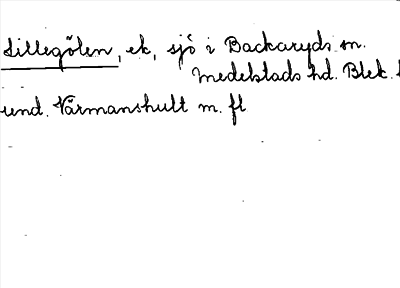 Lillegölen, ek, sjö i Backaryds sn.
Medelstads hd. Blek.
und. Värmanshult m. fl